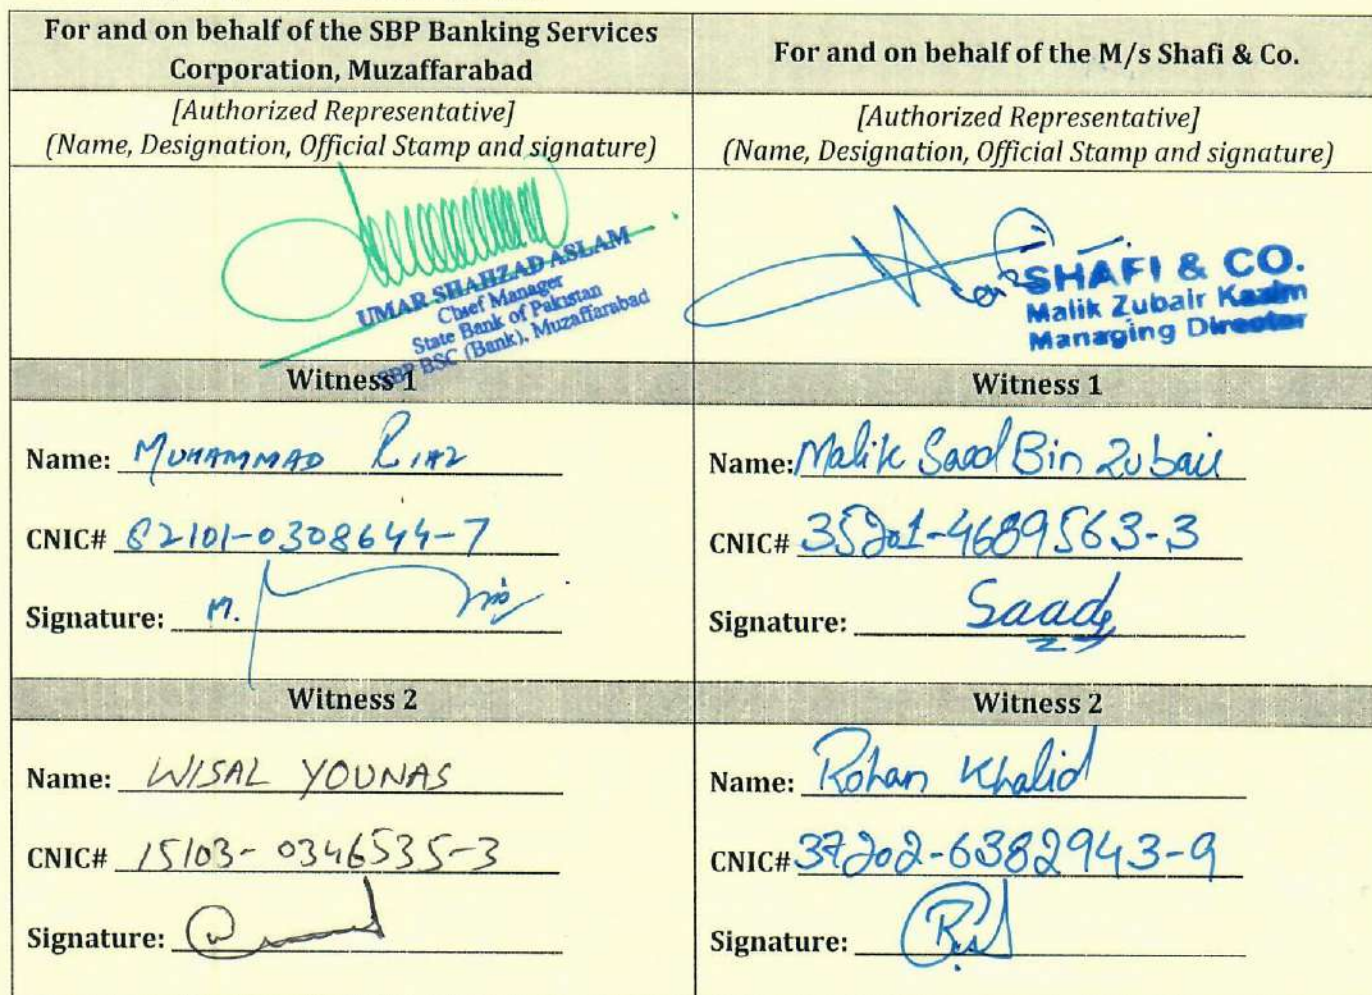 For and on behalf of the SBP Banking Services
Corporation, Muzaffarabad
For and on behalf of the M/s Shafi & Co.
[Authorized Representative]
(Name, Designation, Official Stamp and signature)
[Authorized Representative]
(Name, Designation, Official Stamp and signature)
UMAR SHAHZAD ASLAM
Chief Manager
State Bank of Pakistan
SBP BSC (Bank), Muzaffarabad
SHAFI & CO.
Malik Zubair Kasim
Managing Director
Witness 1
Witness 1
Name: MUHAMMAD RIAZ
CNIC# 82101-0308644-7
Signature: M.
Name: Malik Saad Bin Zubair
CNIC# 35201-4689563-3
Signature: Saad
Witness 2
Witness 2
Name: WISAL YOUNAS
CNIC# 15103-0346535-3
Signature:
Name: Rohan Khalid
CNIC# 37202-6382943-9
Signature: